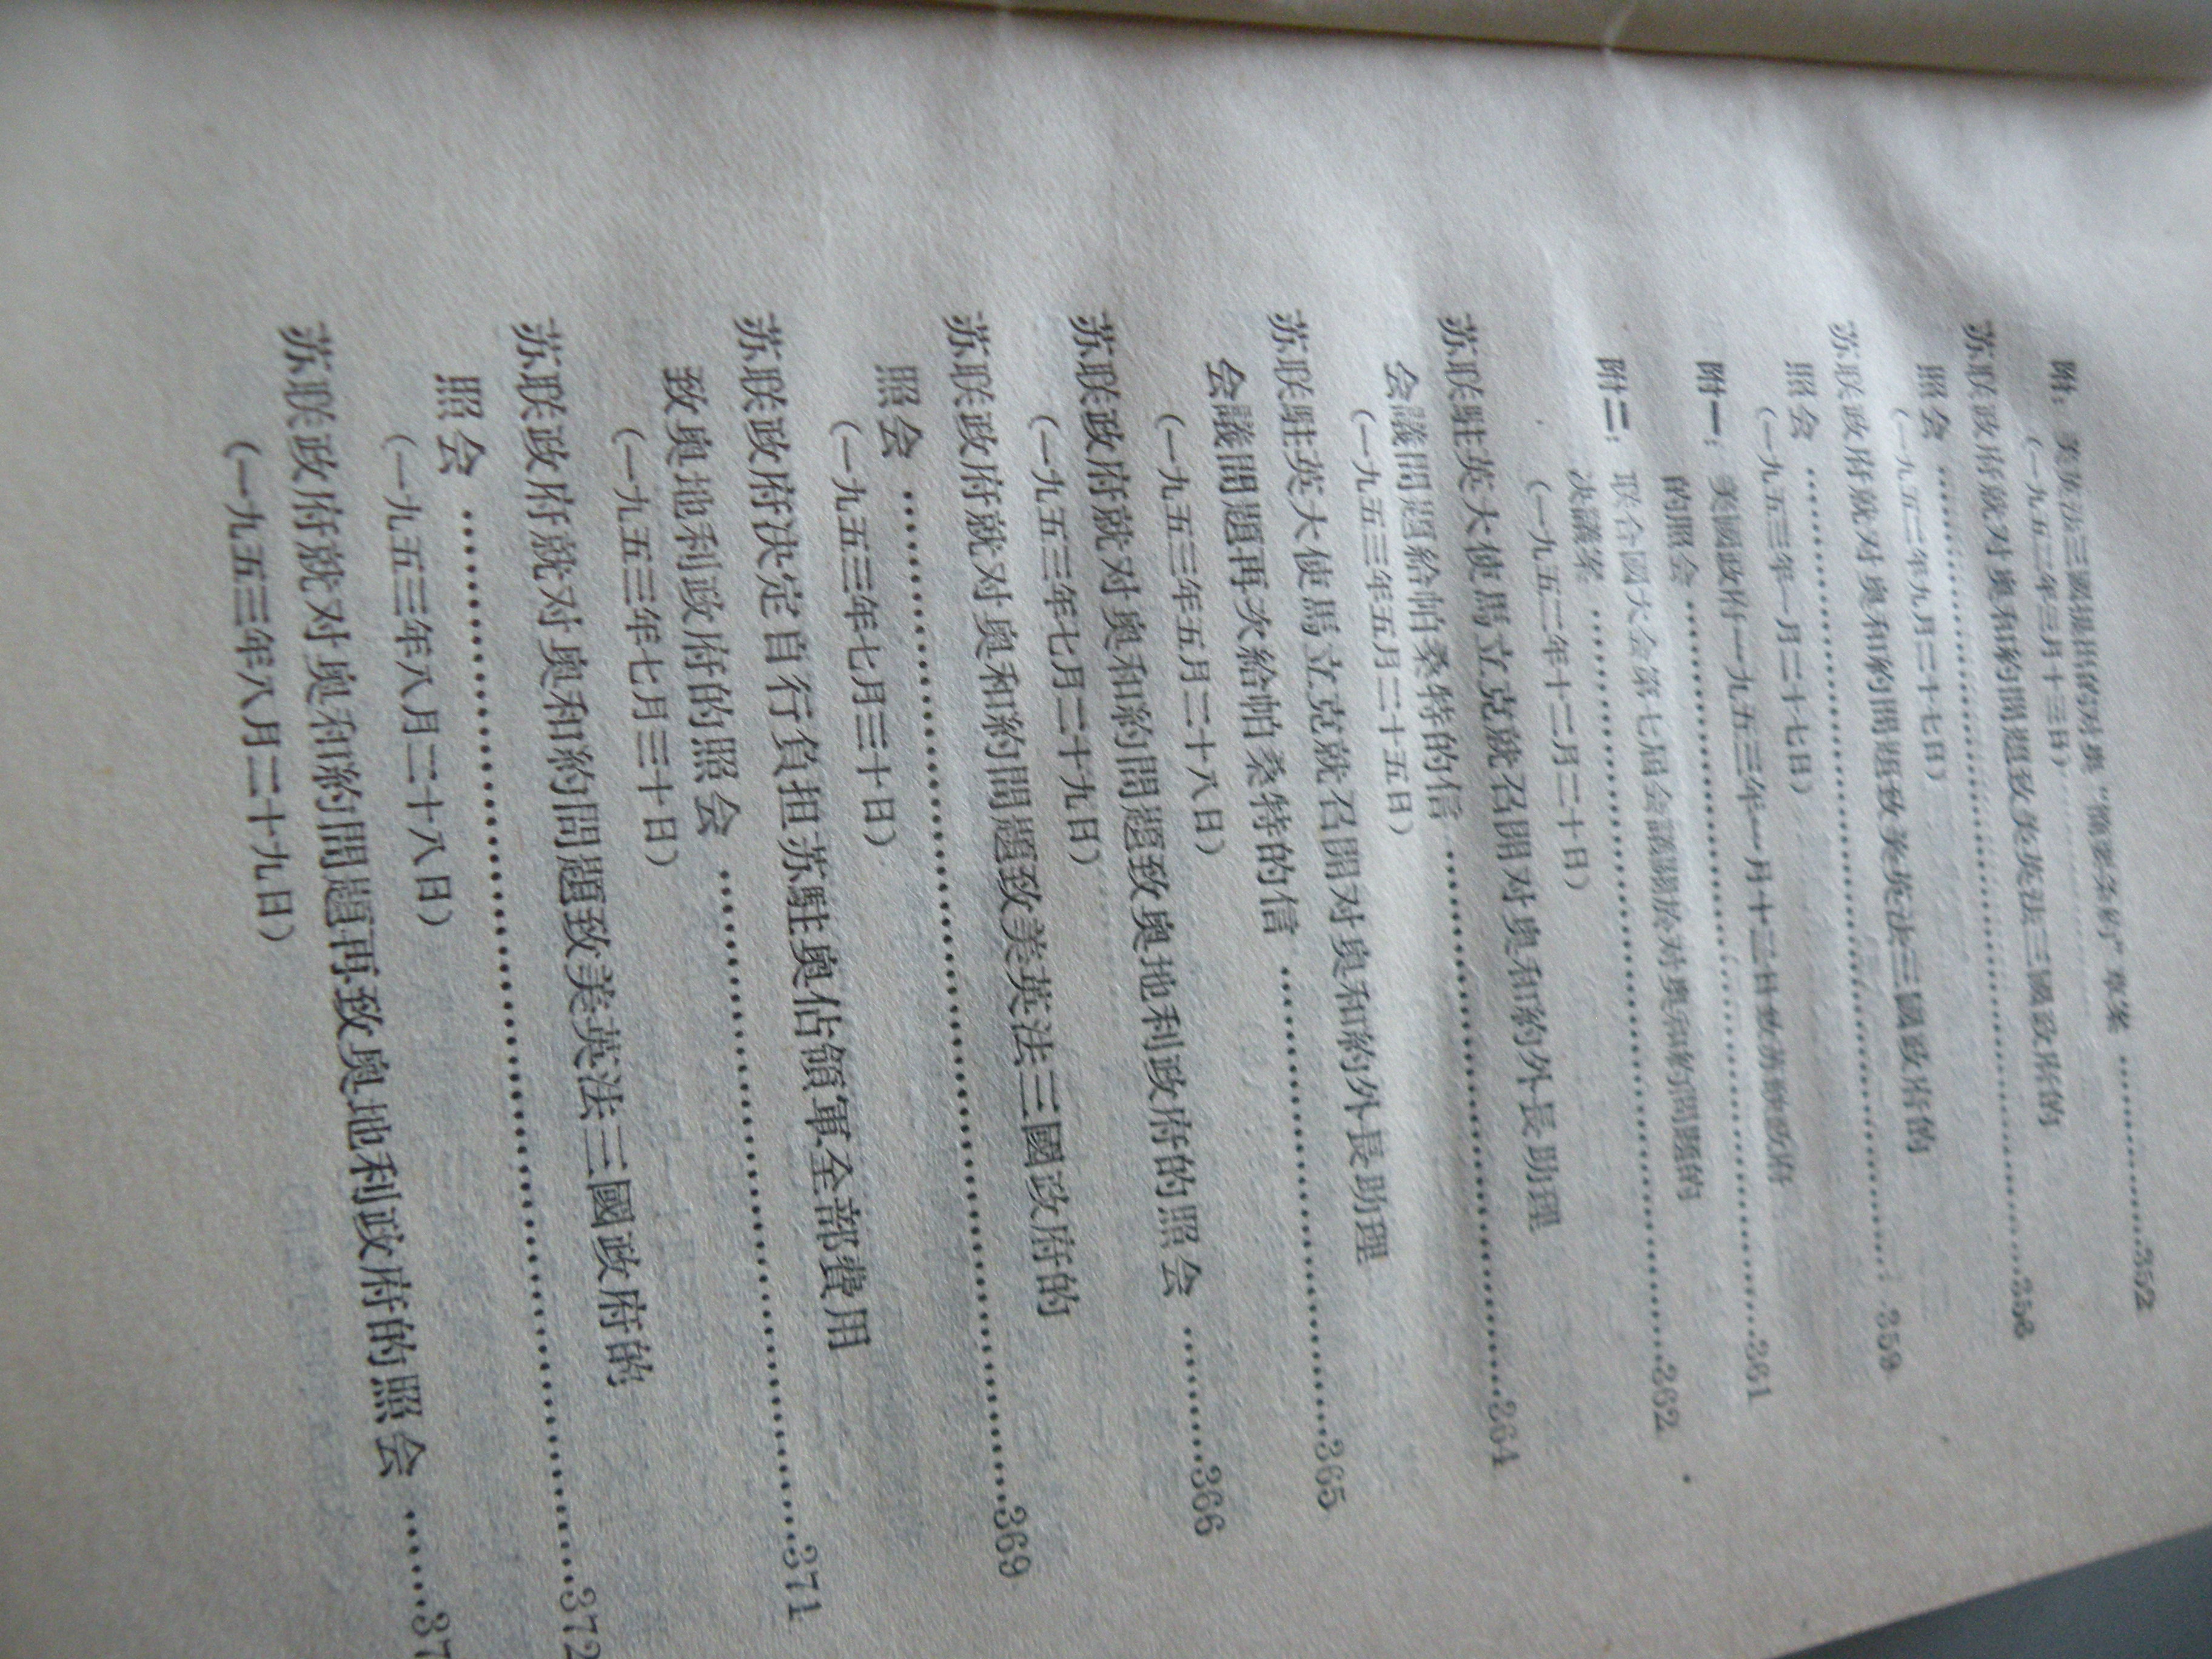 附：美英法三國提出的对奥“簡要条約”草案 ……………352
（一九五二年三月十三日）
苏联政府就对奥和約問題致美英法三國政府的
照会 ……………………………………………………358
（一九五二年九月二十七日）
苏联政府就对奥和約問題致美英法三國政府的
照会 ……………………………………………………359
（一九五三年一月二十七日）
附一：美國政府一九五三年一月十二日致苏联政府
的照会 ………………………………………………361
附二：联合國大会第七届会議關於对奥和約問題的
决議案 ………………………………………………362
（一九五二年十二月二十日）
苏联駐英大使馬立克就召開对奥和約外長助理
会議問題給帕桑特的信 ………………………………364
（一九五三年五月二十五日）
苏联駐英大使馬立克就召開对奥和約外長助理
会議問題再次給帕桑特的信 …………………………365
（一九五三年五月二十八日）
苏联政府就对奥和約問題致奥地利政府的照会 ………366
（一九五三年七月二十九日）
苏联政府就对奥和約問題致美英法三國政府的
照会 ……………………………………………………369
（一九五三年七月三十日）
苏联政府决定自行負担苏駐奥佔領軍全部費用
致奥地利政府的照会 …………………………………371
（一九五三年七月三十日）
苏联政府就对奥和約問題致美英法三國政府的
照会 ……………………………………………………372
（一九五三年八月二十八日）
苏联政府就对奥和約問題再致奥地利政府的照会 ……37
（一九五三年八月二十九日）